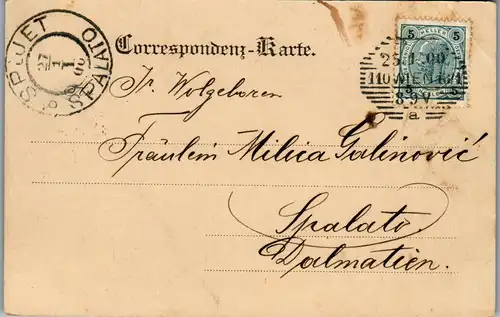 SPLJET SPALATO
27 1 00
Correspondenz-Karte.
5 HELLER 5
25.1.00
110 WIEN
8-9V
a
Ir. Wolgeboren
Fräulein Milica Galinović
Spalato
Dalmatien.